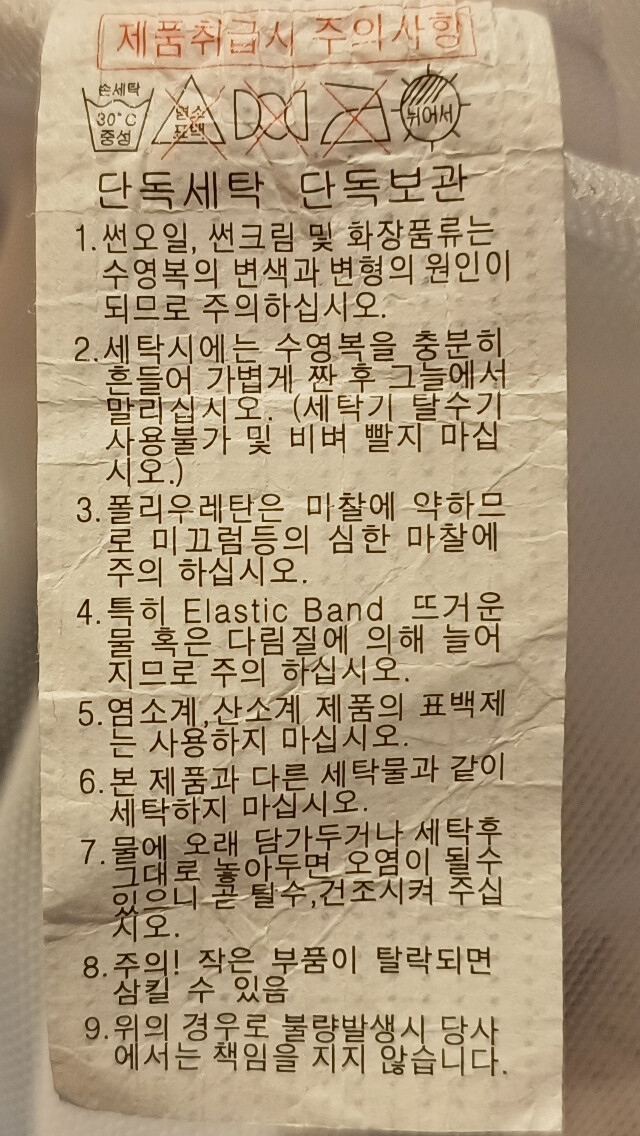 제품취급시 주의사항
손세탁
30°C
중성
염소
표백
뉘어서
단독세탁 단독보관
1.썬오일, 썬크림 및 화장품류는
수영복의 변색과 변형의 원인이
되므로 주의하십시오.
2.세탁시에는 수영복을 충분히
흔들어 가볍게 짠 후 그늘에서
말리십시오. (세탁기 탈수기
사용불가 및 비벼 빨지 마십
시오.)
3.폴리우레탄은 미찰에 약하므
로 미끄럼등의 심한 마찰에
주의 하십시오.
4.특히 Elastic Band 뜨거운
물 혹은 다림질에 의해 늘어
지므로 주의 하십시오.
5.염소계,산소계 제품의 표백제
는 사용하지 마십시오.
6.본 제품과 다른 세탁물과 같이
세탁하지 마십시오.
7.물에 오래 담가두거나 세탁후
그대로 놓아두면 오염이 될수
있으니 곧 털수,건조시켜 주십
시오.
8.주의! 작은 부품이 탈락되면
삼킬 수 있음
9.위의 경우로 불량발생시 당사
에서는 책임을 지지 않습니다.